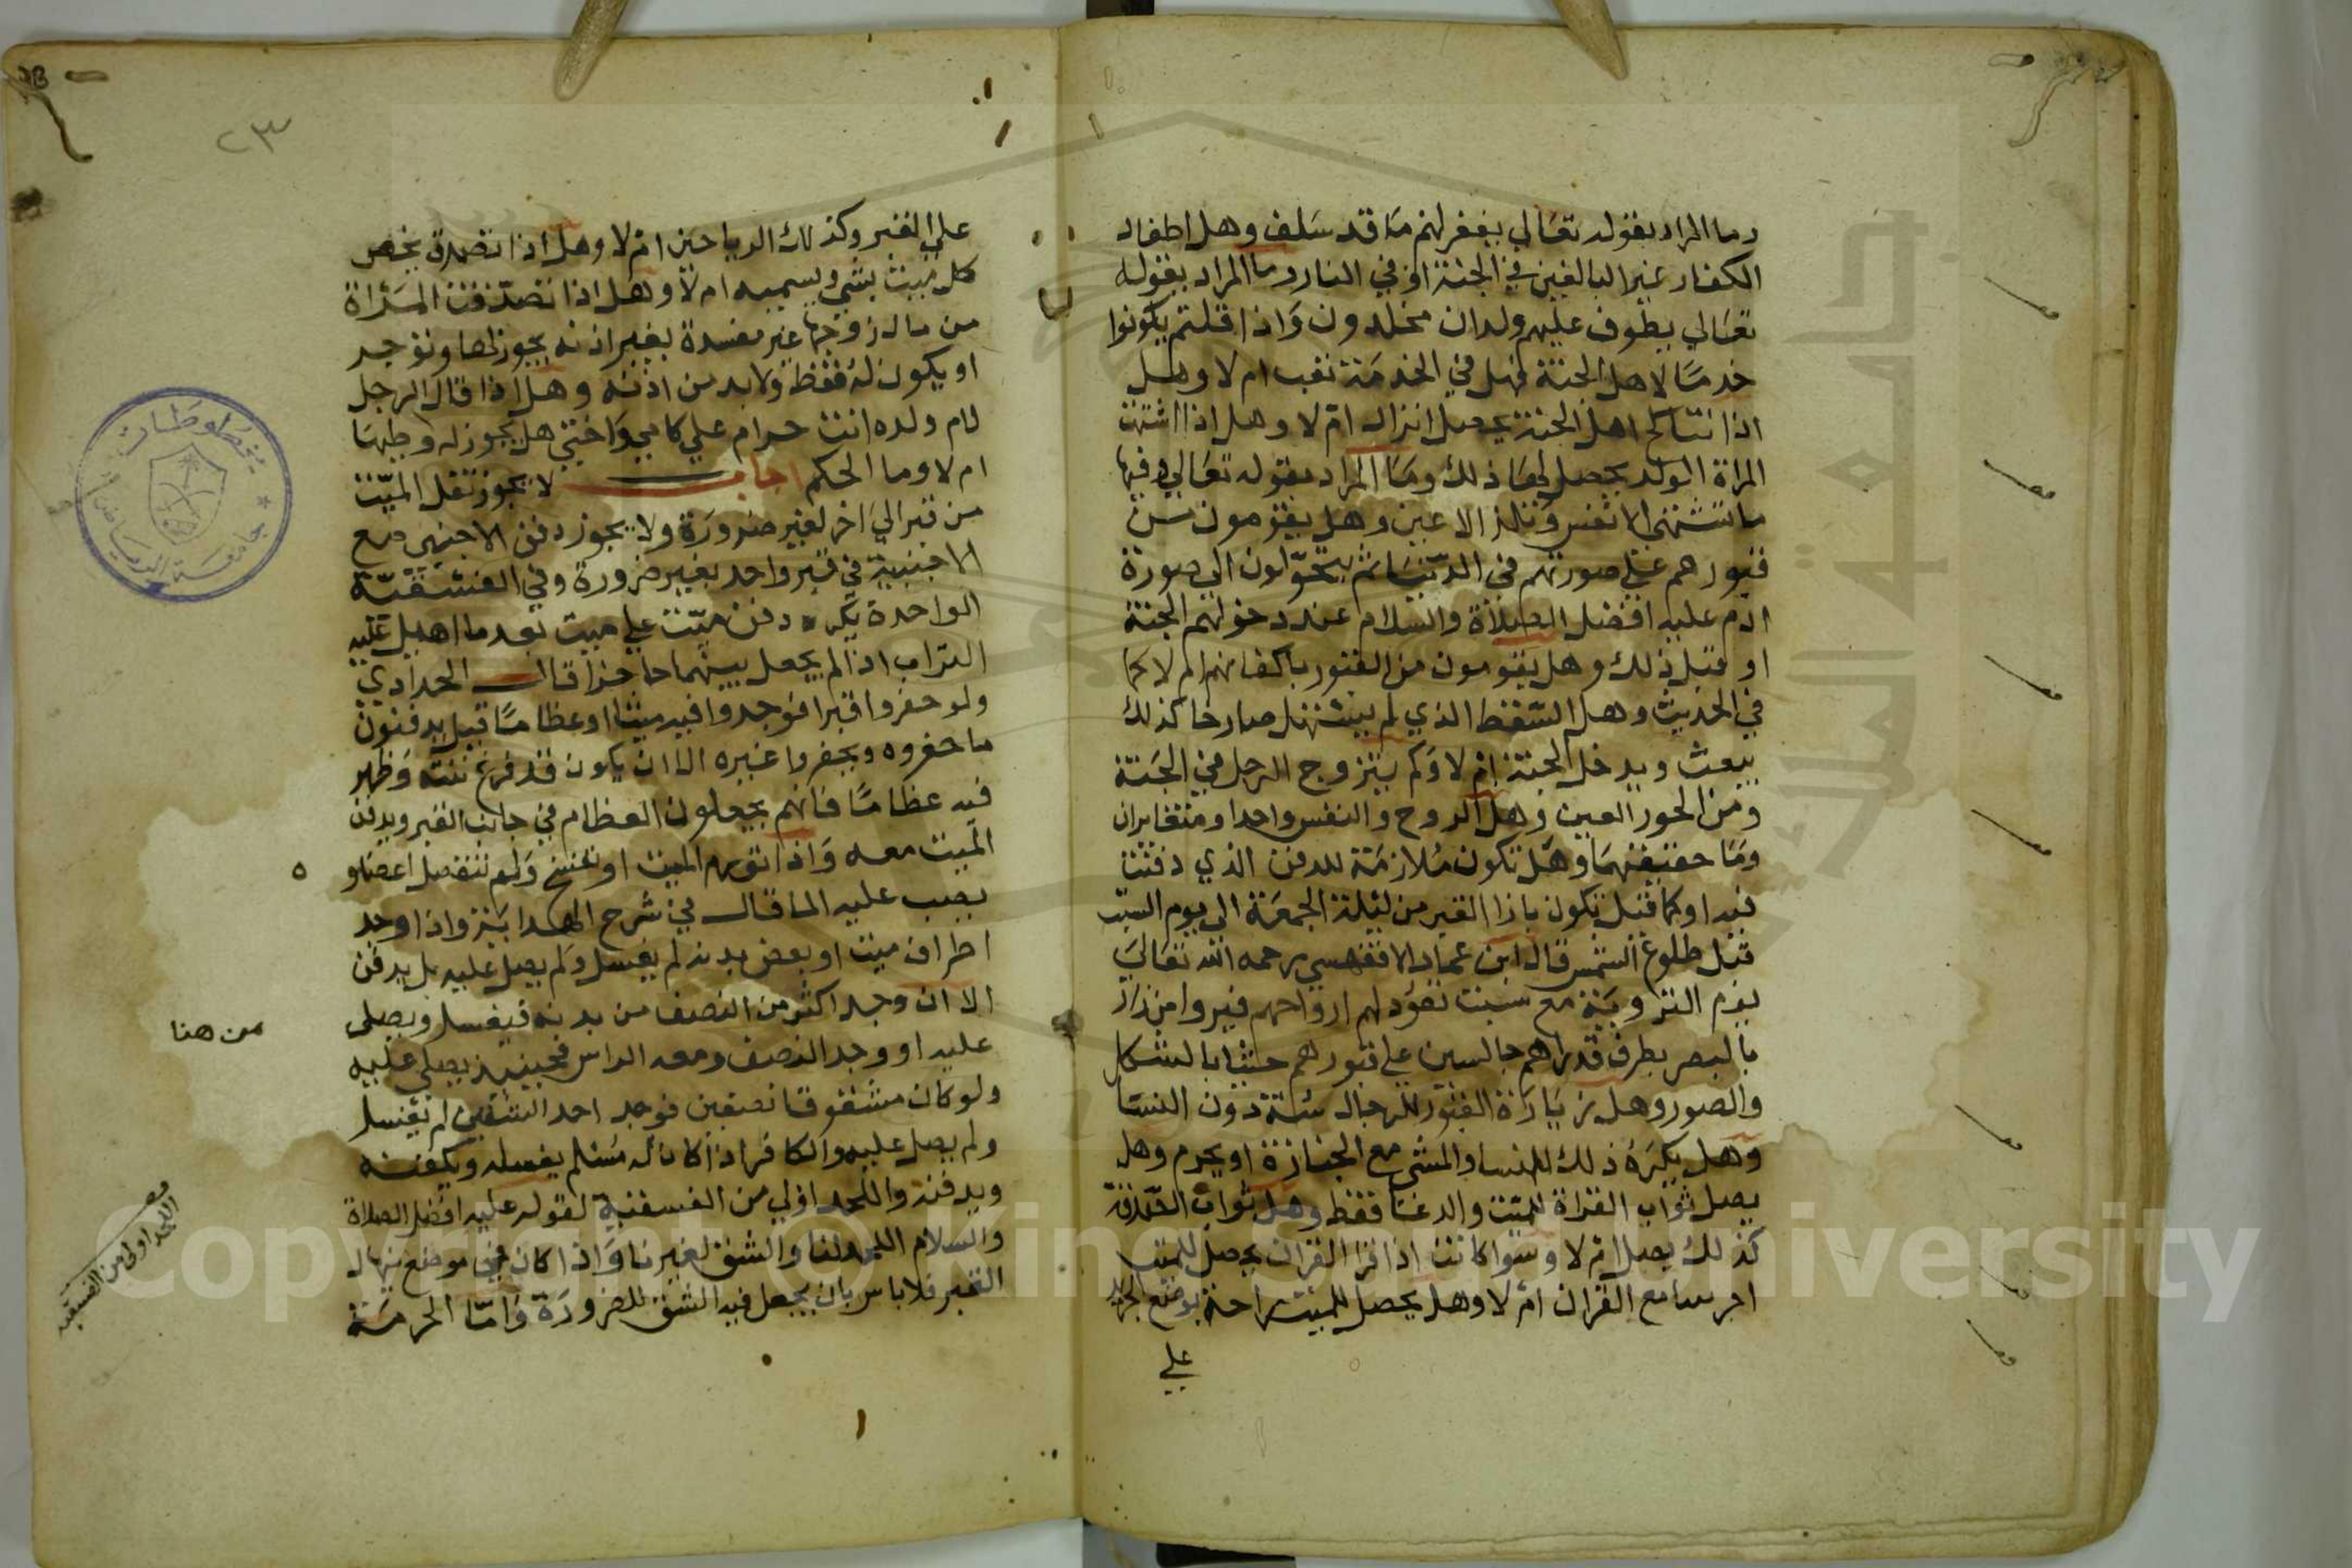 وما المراد بقوله تعالي يغفر لهم ما قد سلف وهل اطفال
الكفار غير البالغين في الجنة او في النار وما المراد بقوله
تعالي يطوف عليهم ولدان مخلدون واذا قلتم يكونوا
خدمًا لاهل الجنة فهل في الخدمة تعب ام لا وهل
اذا تناكح اهل الجنة يحصل انزال ام لا وهل اذا اشتهت
المراة الولد يحصل لها ذلك وما المراد بقوله تعالي وفيها
ما تشتهي الانفس وتلذ الاعين وهل يقومون من
قبورهم علي صورتهم في الدنيا ثم يتحولون الي صورة
ادم عليه افضل الصلاة والسلام عند دخولهم الجنة
او قبل ذلك وهل يقومون من القبور باكفانهم ام لا كما
في الحديث وهل السقط الذي لم يستهل صارخا كذلك
يبعث ويدخل الجنة ام لا وكم يتزوج الرجل في الجنة
ومن الحور العين وهل الروح والنفس واحد او متغايران
وما حقيقتهما وهل تكون ملازمة للدفن الذي دفنت
فيه او كما قيل تكون بازا القبر من ليلة الجمعة الي يوم السبت
قبل طلوع الشمس قال ابن عماد الاقفهسي رحمه الله تعالي
يوم التروية مع سبت تعود لهم ارواحهم فيروا من زار
بالبصر بطرف قدراهم جالسين علي قبورهم حيثا بالشكل
والصور وهل زيارة القبور للرجال سنة دون النسا
وهل يكره ذلك للنسا والمشي مع الجنازة او يحرم وهل
يصل ثواب القراة للميت والدعا فقط وهل ثواب الصدقة
كذلك يصل ام لا وسوا كانت اذا قرا القران يحصل للميت
اجر سامع القران ام لا وهل يحصل للميت راحة بوضع الجريد
علي
٢٣
علي القبر وكذلك الرياحين ام لا وهل اذا تصدق يخص
كل ميت بشي ويسميه ام لا وهل اذا تصدقت المراة
من مال زوجها غير مفسدة بغير اذنه يجوز لها وتوجر
او يكون له فقط ولا بد من اذنه وهل اذا قال الرجل
لام ولده انت حرام علي كامي واختي هل يجوز له وطيها
ام لا وما الحكم اجاب لا يجوز نقل الميت
من قبر الي اخر لغير ضرورة ولا يجوز دفن الاجنبي مع
الاجنبية في قبر واحد بغير ضرورة وفي الفسقية
الواحدة يكره دفن ميت علي ميت بعد ما اهيل عليه
التراب اذا لم يجعل بينهما حاجزا قال الحدادي
ولو حفروا قبرا فوجدوا فيه ميتا او عظامًا قيل يدفنون
ما حفروه ويحفروا غيره الا ان يكون قد فرغ نتنه وظهر
فيه عظامًا فانهم يجعلون العظام في جانب القبر ويدفن
الميت معه واذا تورم الميت او تفسخ ولم تنفصل اعضاوه
يصب عليه الما قال في شرح الهداية واذا وجد
اطراف ميت او بعض بدنه لم يغسل ولم يصل عليه بل يدفن
الا ان وجد اكثر من النصف من بدنه فيغسل ويصلي
عليه او وجد النصف ومعه الراس فحينيذ يصلي عليه
ولو كان مشقوقا نصفين فوجد احد الشقين لم يغسل
ولم يصل عليه والكافر اذا كان له مسلم يغسله ويكفنه
ويدفنه واللحد اولي من الفسقية لقوله عليه افضل الصلاة
والسلام اللحد لنا والشق لغيرنا واذا كان في موضع ينهال
القبر فلا باس بان يجعل فيه الشق للضرورة واما الحرمة
من هنا
اللحد اولي من الفسقيه
مخطوطات
جامعة الرياض
جامعة الملك سعود
Copyright © King Saud University